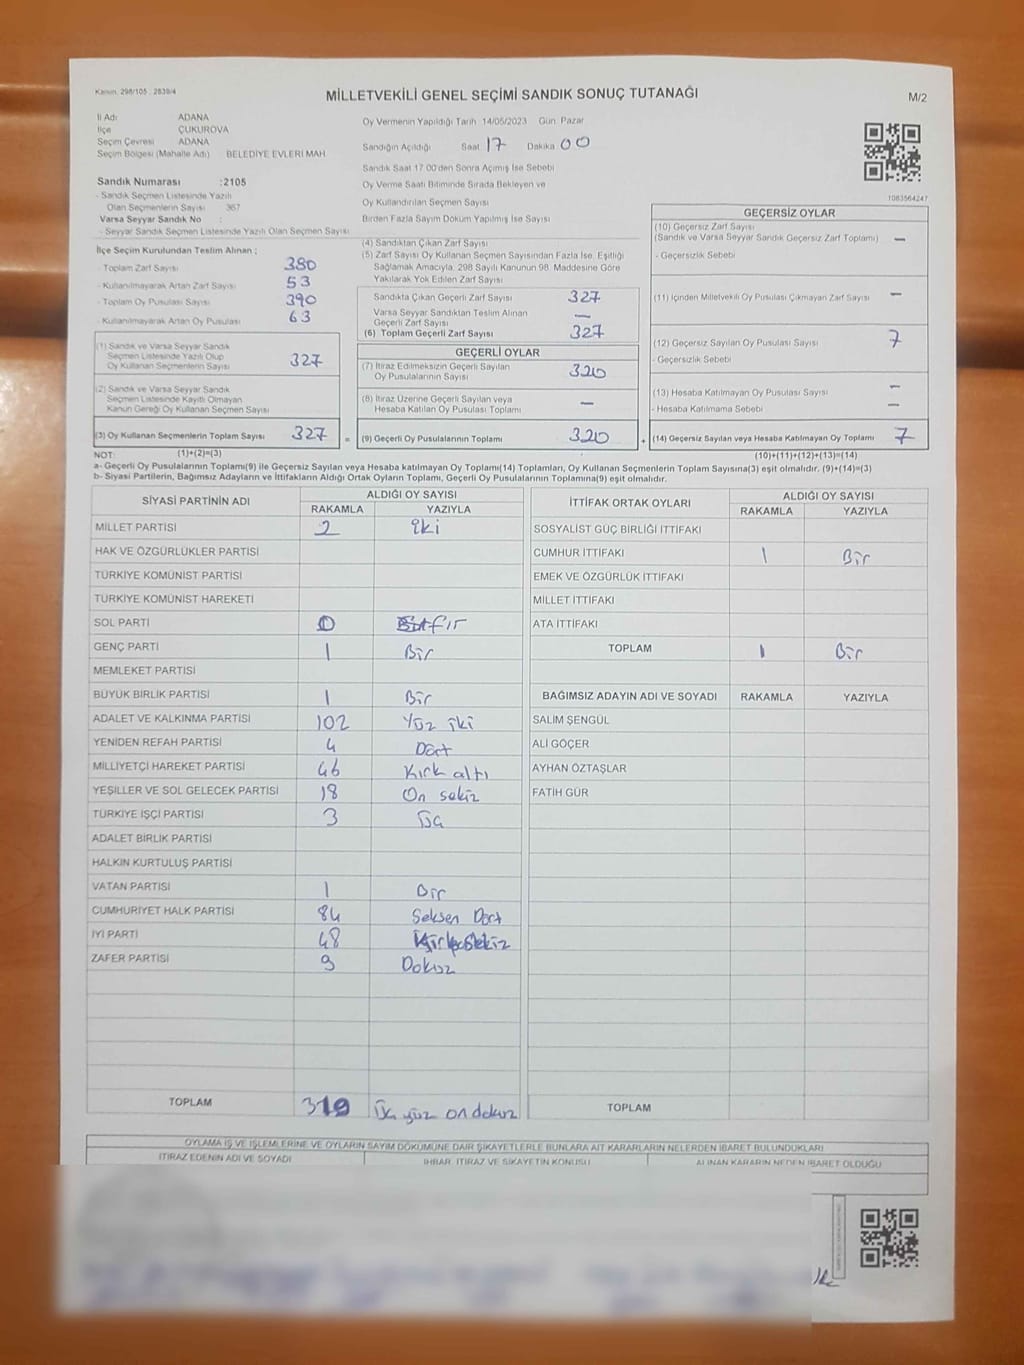 Kanun. 298/105 . 2839/4
MİLLETVEKİLİ GENEL SEÇİMİ SANDIK SONUÇ TUTANAĞI
M/2
İl Adı ADANA
İlçe ÇUKUROVA
Seçim Çevresi ADANA
Seçim Bölgesi (Mahalle Adı) BELEDİYE EVLERİ MAH
Oy Vermenin Yapıldığı Tarih 14/05/2023 Gün: Pazar
Sandığın Açıldığı Saat 17 Dakika 00
Sandık Saat 17 00'den Sonra Açılmış İse Sebebi
Oy Verme Saati Bitiminde Sırada Bekleyen ve
Oy Kullandırılan Seçmen Sayısı
Birden Fazla Sayım Döküm Yapılmış İse Sayısı
1083564247
Sandık Numarası :2105
- Sandık Seçmen Listesinde Yazılı
Olan Seçmenlerin Sayısı 367
Varsa Seyyar Sandık No :
- Seyyar Sandık Seçmen Listesinde Yazılı Olan Seçmen Sayısı
İlçe Seçim Kurulundan Teslim Alınan ;
- Toplam Zarf Sayısı 380
- Kullanılmayarak Artan Zarf Sayısı 53
- Toplam Oy Pusulası Sayısı 390
- Kullanılmayarak Artan Oy Pusulası 63
(1) Sandık ve Varsa Seyyar Sandık
Seçmen Listesinde Yazılı Olup
Oy Kullanan Seçmenlerin Sayısı 327
(2) Sandık ve Varsa Seyyar Sandık
Seçmen Listesinde Kayıtlı Olmayan
Kanun Gereği Oy Kullanan Seçmen Sayısı
(3) Oy Kullanan Seçmenlerin Toplam Sayısı 327 =
(1)+(2)=(3)
(4) Sandıktan Çıkan Zarf Sayısı
(5) Zarf Sayısı Oy Kullanan Seçmen Sayısından Fazla İse, Eşitliği
Sağlamak Amacıyla, 298 Sayılı Kanunun 98. Maddesine Göre
Yakılarak Yok Edilen Zarf Sayısı
Sandıkta Çıkan Geçerli Zarf Sayısı 327
Varsa Seyyar Sandıktan Teslim Alınan
Geçerli Zarf Sayısı —
(6) Toplam Geçerli Zarf Sayısı 327
GEÇERLİ OYLAR
(7) İtiraz Edilmeksizin Geçerli Sayılan
Oy Pusulalarının Sayısı 320
(8) İtiraz Üzerine Geçerli Sayılan veya
Hesaba Katılan Oy Pusulası Toplamı —
(9) Geçerli Oy Pusulalarının Toplamı 320 +
GEÇERSİZ OYLAR
(10) Geçersiz Zarf Sayısı
(Sandık ve Varsa Seyyar Sandık Geçersiz Zarf Toplamı) —
- Geçersizlik Sebebi
(11) İçinden Milletvekili Oy Pusulası Çıkmayan Zarf Sayısı —
(12) Geçersiz Sayılan Oy Pusulası Sayısı 7
- Geçersizlik Sebebi
(13) Hesaba Katılmayan Oy Pusulası Sayısı —
- Hesaba Katılmama Sebebi —
(14) Geçersiz Sayılan veya Hesaba Katılmayan Oy Toplamı 7
(10)+(11)+(12)+(13)=(14)
NOT:
a- Geçerli Oy Pusulalarının Toplamı(9) ile Geçersiz Sayılan veya Hesaba katılmayan Oy Toplamı(14) Toplamları, Oy Kullanan Seçmenlerin Toplam Sayısına(3) eşit olmalıdır. (9)+(14)=(3)
b- Siyasi Partilerin, Bağımsız Adayların ve İttifakların Aldığı Ortak Oyların Toplamı, Geçerli Oy Pusulalarının Toplamına(9) eşit olmalıdır.
SİYASİ PARTİNİN ADI ALDIĞI OY SAYISI
RAKAMLA YAZIYLA
MİLLET PARTİSİ 2 iki
HAK VE ÖZGÜRLÜKLER PARTİSİ
TÜRKİYE KOMÜNİST PARTİSİ
TÜRKİYE KOMÜNİST HAREKETİ
SOL PARTİ 0 Sıfır
GENÇ PARTİ 1 Bir
MEMLEKET PARTİSİ
BÜYÜK BİRLİK PARTİSİ 1 Bir
ADALET VE KALKINMA PARTİSİ 102 Yüz iki
YENİDEN REFAH PARTİSİ 4 Dört
MİLLİYETÇİ HAREKET PARTİSİ 46 Kırk altı
YEŞİLLER VE SOL GELECEK PARTİSİ 18 On sekiz
TÜRKİYE İŞÇİ PARTİSİ 3 Üç
ADALET BİRLİK PARTİSİ
HALKIN KURTULUŞ PARTİSİ
VATAN PARTİSİ 1 Bir
CUMHURİYET HALK PARTİSİ 84 Seksen Dört
İYİ PARTİ 48 Kırksekiz
ZAFER PARTİSİ 9 Dokuz
TOPLAM 319 Üç yüz on dokuz
İTTİFAK ORTAK OYLARI ALDIĞI OY SAYISI
RAKAMLA YAZIYLA
SOSYALİST GÜÇ BİRLİĞİ İTTİFAKI
CUMHUR İTTİFAKI 1 Bir
EMEK VE ÖZGÜRLÜK İTTİFAKI
MİLLET İTTİFAKI
ATA İTTİFAKI
TOPLAM 1 Bir
BAĞIMSIZ ADAYIN ADI VE SOYADI RAKAMLA YAZIYLA
SALİM ŞENGÜL
ALİ GÖÇER
AYHAN ÖZTAŞLAR
FATİH GÜR
TOPLAM
OYLAMA İŞ VE İŞLEMLERİNE VE OYLARIN SAYIM DÖKÜMÜNE DAİR ŞİKAYETLERLE BUNLARA AİT KARARLARIN NELERDEN İBARET BULUNDUKLARI
İTİRAZ EDENİN ADI VE SOYADI İHBAR, İTİRAZ VE ŞİKAYETİN KONUSU ALINAN KARARIN NEDEN İBARET OLDUĞU